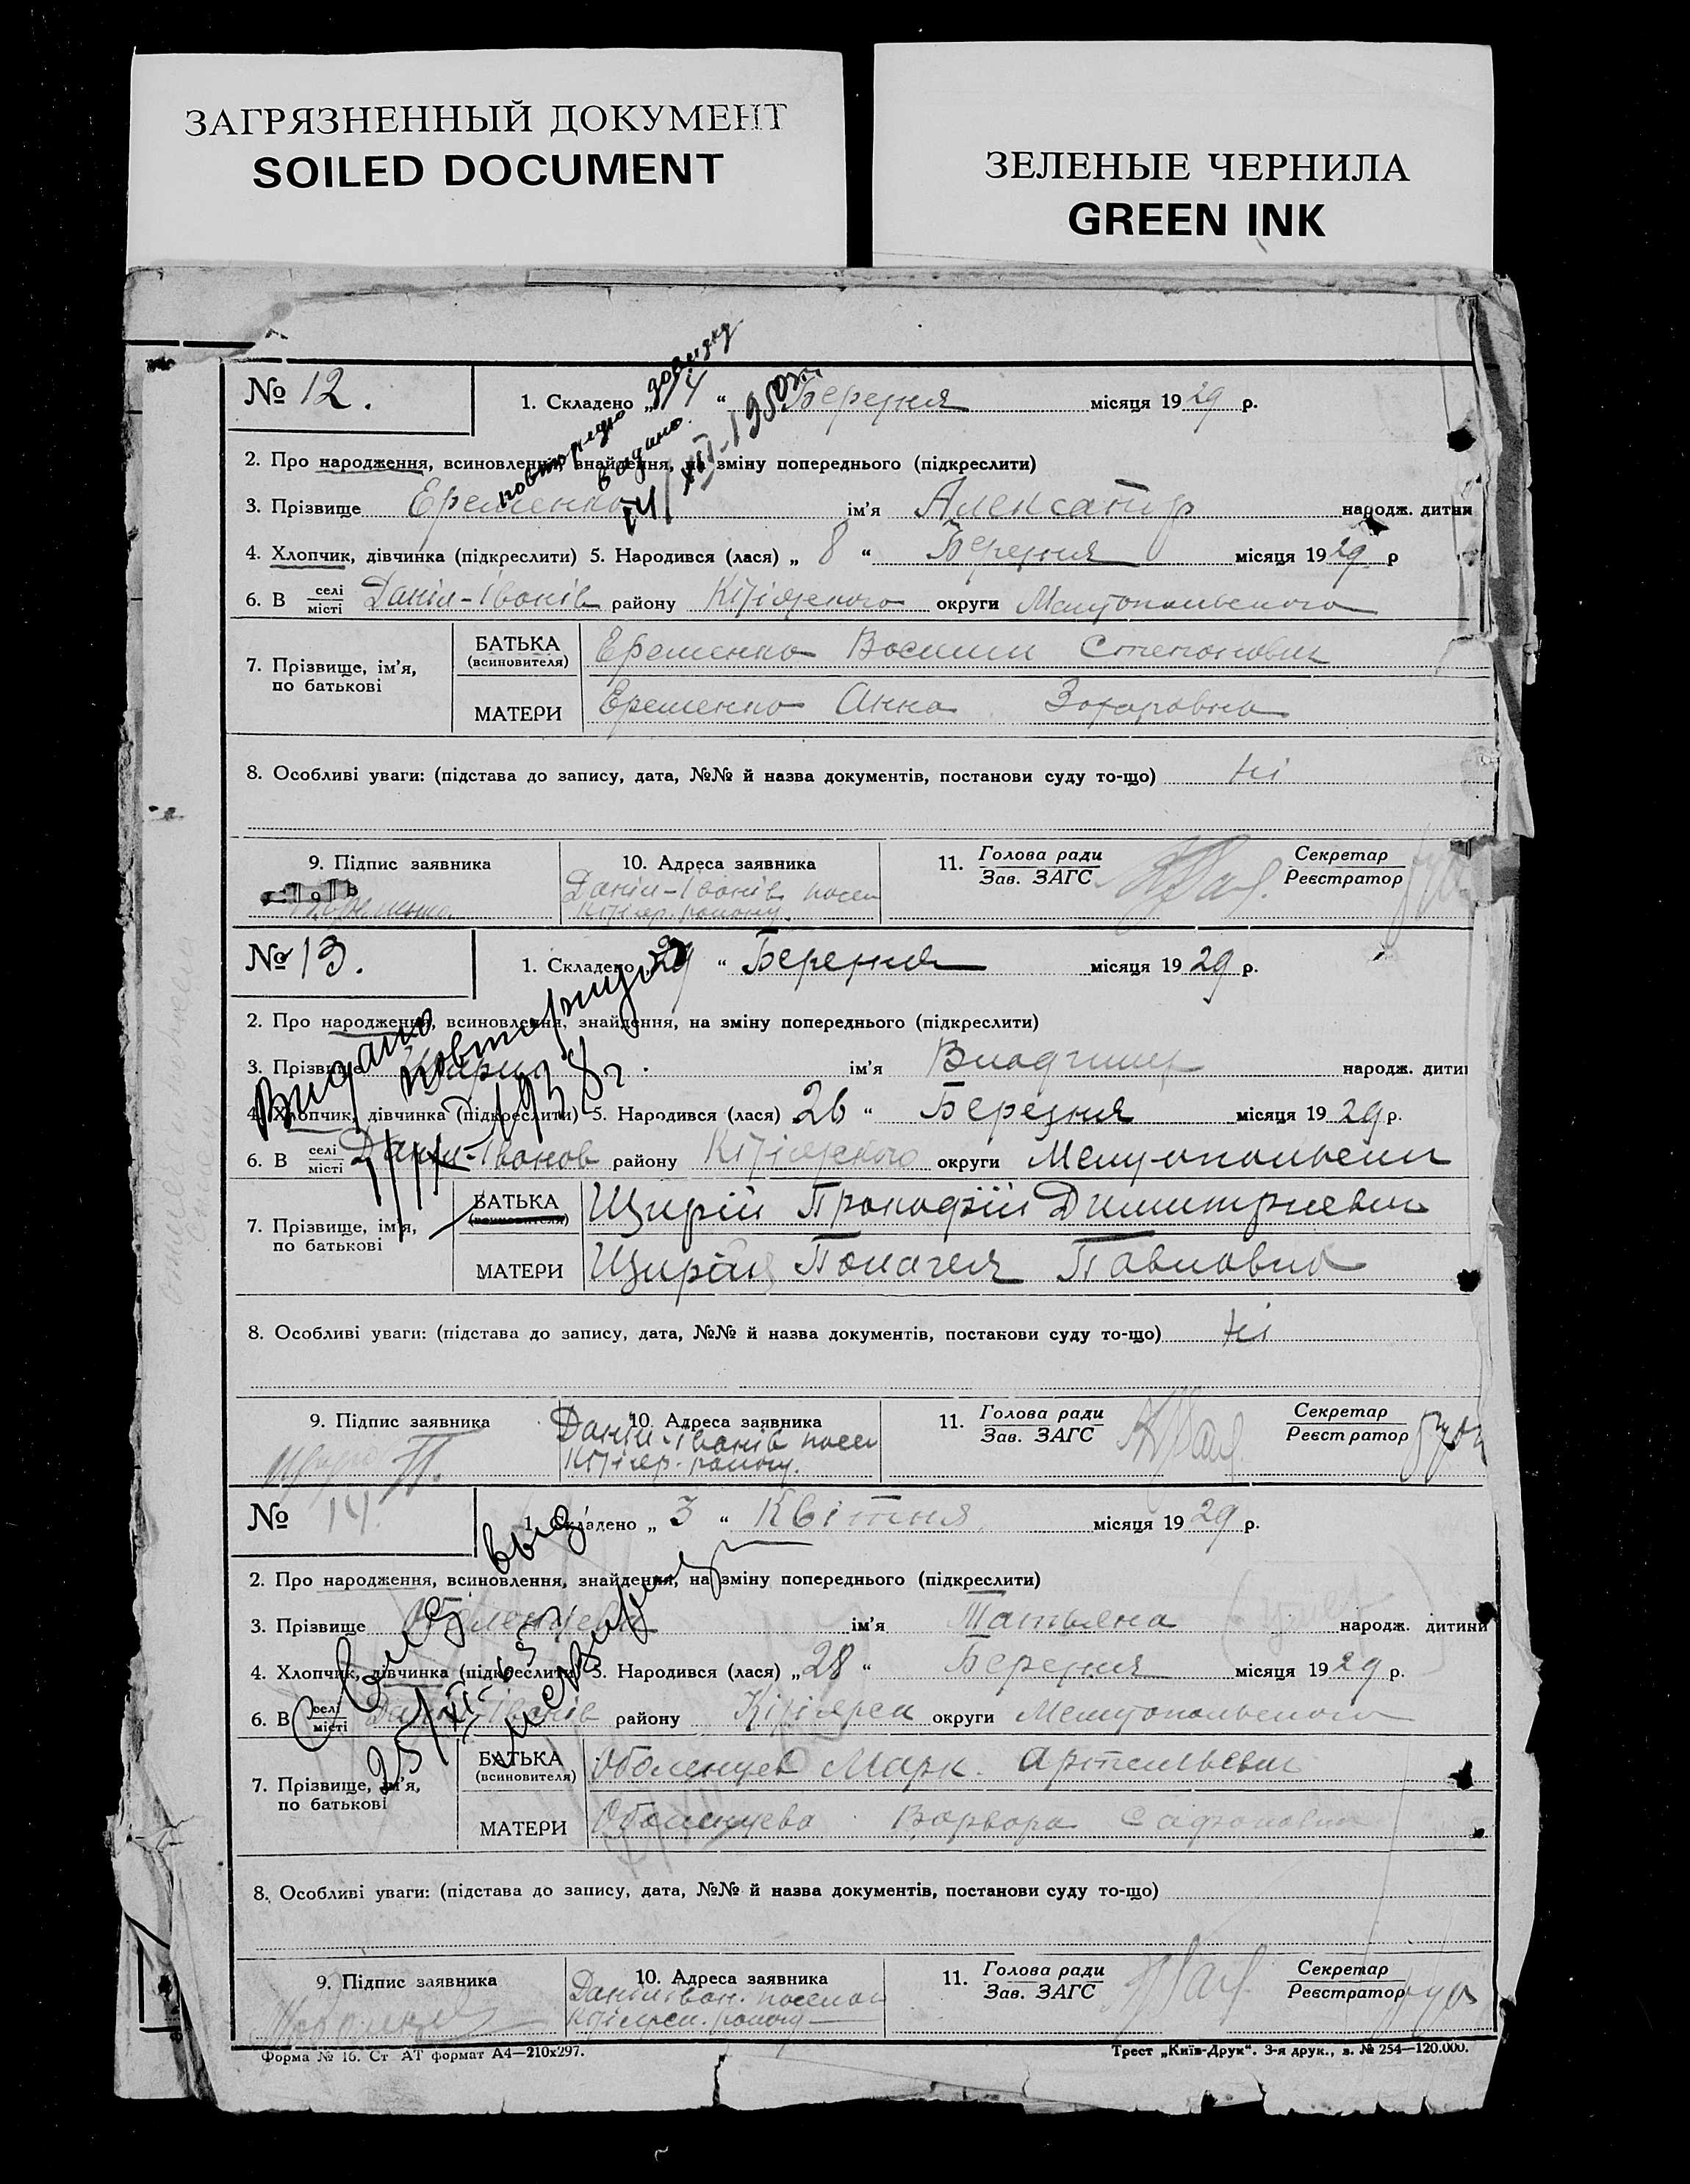 ЗАГРЯЗНЕННЫЙ ДОКУМЕНТ
SOILED DOCUMENT
ЗЕЛЕНЫЕ ЧЕРНИЛА
GREEN INK
№ 12.
1. Складено „14“ Березня місяця 1929 р.
повторную довидку
видано.
14/XII-1950
2. Про народження, всиновлення, знайдення, на зміну попереднього (підкреслити)
3. Прізвище Еременко ім'я Александр народж. дитини
4. Хлопчик, дівчинка (підкреслити) 5. Народився (лася) „8“ Березня місяця 1929 р
6. В селі місті Даніл-Іванів району Кізіярского округи Мелітопольского
7. Прізвище, ім'я, по батькові
БАТЬКА (всиновителя) Еременко Василий Степанович
МАТЕРИ Еременко Анна Захаровна
8. Особливі уваги: (підстава до запису, дата, №№ й назва документів, постанови суду то-що) ні
9. Підпис заявника
10. Адреса заявника
Даніл-Іванів посел
Кізіяр. району.
11. Голова ради Зав. ЗАГС
Секретар Реєстратор
№ 13.
1. Складено „29“ Березня місяця 1929 р.
2. Про народження, всиновлення, знайдення, на зміну попереднього (підкреслити)
Видано повторную
1938 г.
3. Прізвище ім'я Владимир народж. дити
4. Хлопчик, дівчинка (підкреслити) 5. Народився (лася) 26“ Березня місяця 1929 р.
6. В селі місті Даніл-Іванов району Кізіярского округи Мелитопольски
7. Прізвище, ім'я, по батькові
БАТЬКА (всиновителя) Щирій Прокофій Димитриевич
МАТЕРИ Щирій Полагея Павловна
8. Особливі уваги: (підстава до запису, дата, №№ й назва документів, постанови суду то-що) ні
9. Підпис заявника
10. Адреса заявника
Даніл-Іванів посел
Кізіяр. району.
11. Голова ради Зав. ЗАГС
Секретар Реєстратор
№ 14.
1. Складено „3“ Квітня місяця 1929 р.
2. Про народження, всиновлення, знайдення, на зміну попереднього (підкреслити)
3. Прізвище Оболенцева ім'я Татьяна народж. дитини
4. Хлопчик, дівчинка (підкреслити) 5. Народився (лася) „28“ Березня місяця 1929 р.
6. В селі місті Даніл-Іванів району Кізіярск округи Мелитопольского
7. Прізвище, ім'я, по батькові
БАТЬКА (всиновителя) Оболенцев Марк Артемьевич
МАТЕРИ Оболенцева Варвара Сафоновна
8. Особливі уваги: (підстава до запису, дата, №№ й назва документів, постанови суду то-що)
9. Підпис заявника
10. Адреса заявника
Даніл Іван. поселок
Кізіярск. району
11. Голова ради Зав. ЗАГС
Секретар Реєстратор
Форма № 16. Ст АТ формат А4—210х297.
Трест „Київ-Друк“. 3-я друк., з. № 254—120.000.